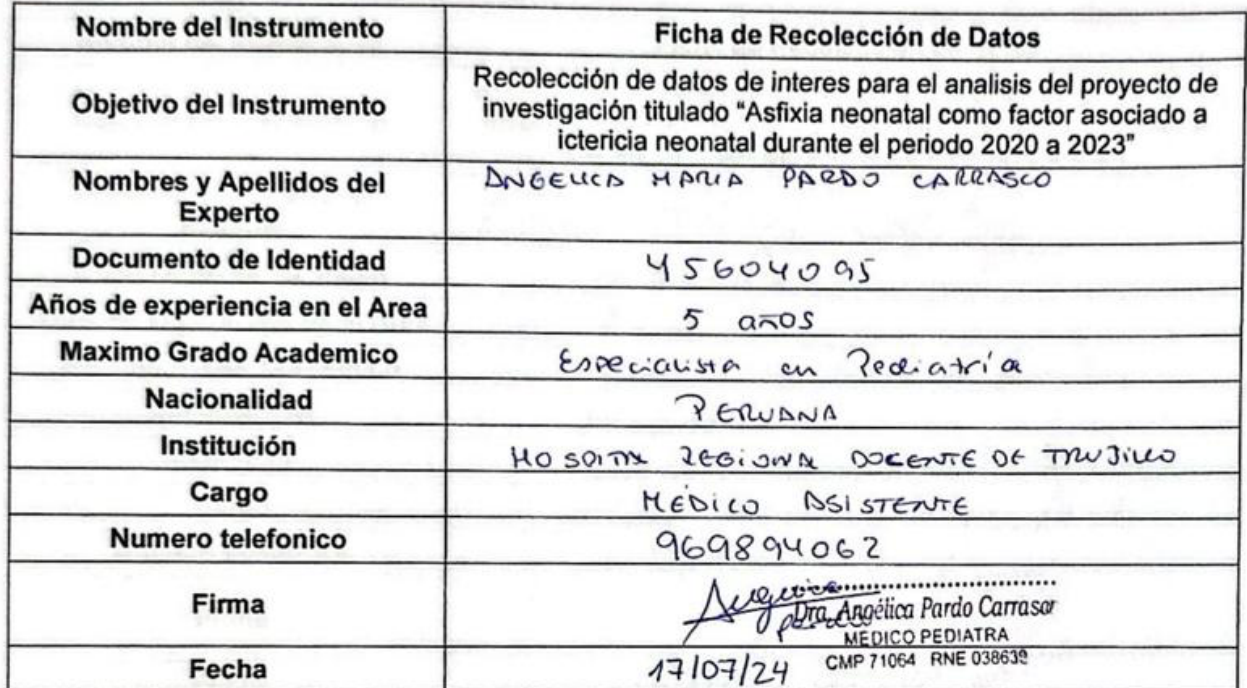 Nombre del Instrumento
Ficha de Recolección de Datos
Objetivo del Instrumento
Recolección de datos de interes para el analisis del proyecto de
investigación titulado “Asfixia neonatal como factor asociado a
ictericia neonatal durante el periodo 2020 a 2023”
Nombres y Apellidos del
Experto
ANGELICA MARIA PARDO CARRASCO
Documento de Identidad
45604095
Años de experiencia en el Area
5 años
Maximo Grado Academico
Especialista en Pediatría
Nacionalidad
PERUANA
Institución
HOSPITAL REGIONAL DOCENTE DE TRUJILLO
Cargo
MÉDICO ASISTENTE
Numero telefonico
969894062
Firma
Dra. Angélica Pardo Carrasco
MEDICO PEDIATRA
CMP 71064 RNE 038639
Fecha
17/07/24